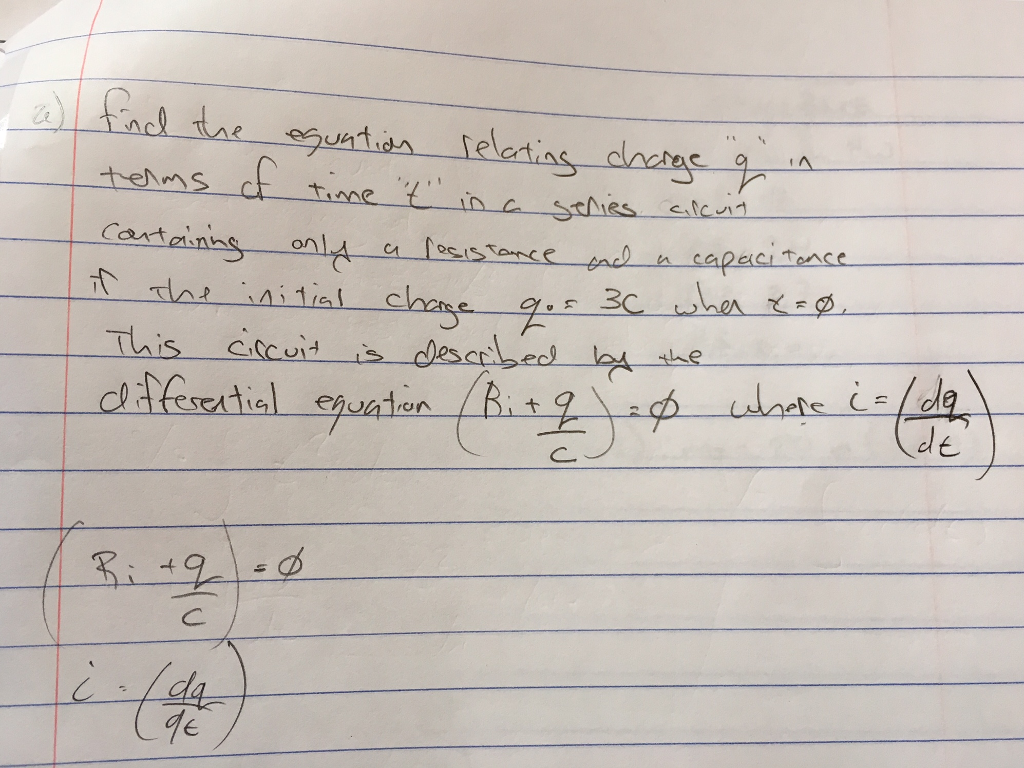 a) find the equation relating charge "q" in
terms of time "t" in a series circuit
containing only a resistance and a capacitance
if the initial charge q₀ = 3C when t = ∅.
This circuit is described by the
differential equation (Ri + q/c) = ∅ where i = (dq/dt)
(Ri + q/c) = ∅
i = (dq/dt)